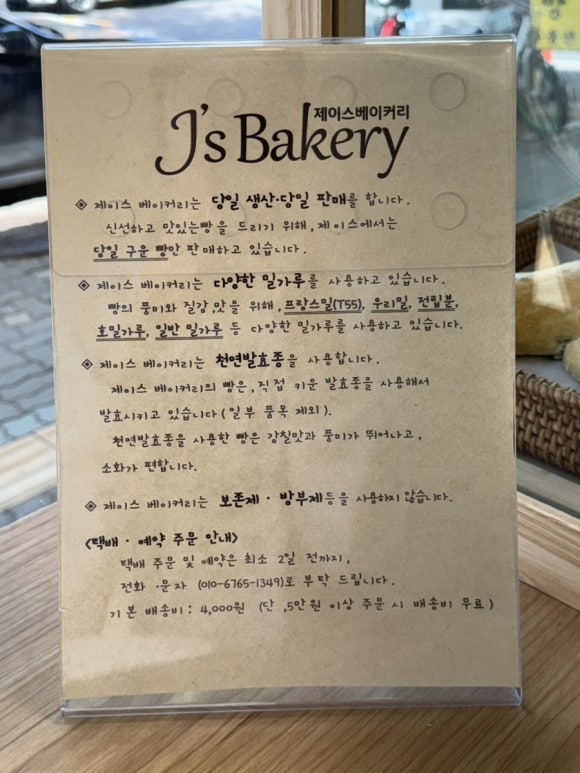 제이스베이커리
J's Bakery
◈ 제이스 베이커리는 당일 생산·당일 판매를 합니다.
신선하고 맛있는빵을 드리기 위해, 제이스에서는
당일 구운 빵만 판매하고 있습니다.
◈ 제이스 베이커리는 다양한 밀가루를 사용하고 있습니다.
빵의 풍미와 질감,맛을 위해, 프랑스밀(T55), 우리밀, 전립분,
호밀가루, 일반 밀가루 등 다양한 밀가루를 사용하고 있습니다.
◈ 제이스 베이커리는 천연발효종을 사용합니다.
제이스 베이커리의 빵은, 직접 키운 발효종을 사용해서
발효시키고 있습니다(일부 품목 제외).
천연발효종을 사용한 빵은 감칠맛과 풍미가 뛰어나고,
소화가 편합니다.
◈ 제이스 베이커리는 보존제 · 방부제등을 사용하지 않습니다.
<택배 · 예약 주문 안내>
택배 주문 및 예약은 최소 2일 전까지,
전화 ·문자 (010-6765-1349)로 부탁 드립니다.
기본 배송비: 4,000원 (단 ,5만원 이상 주문 시 배송비 무료)